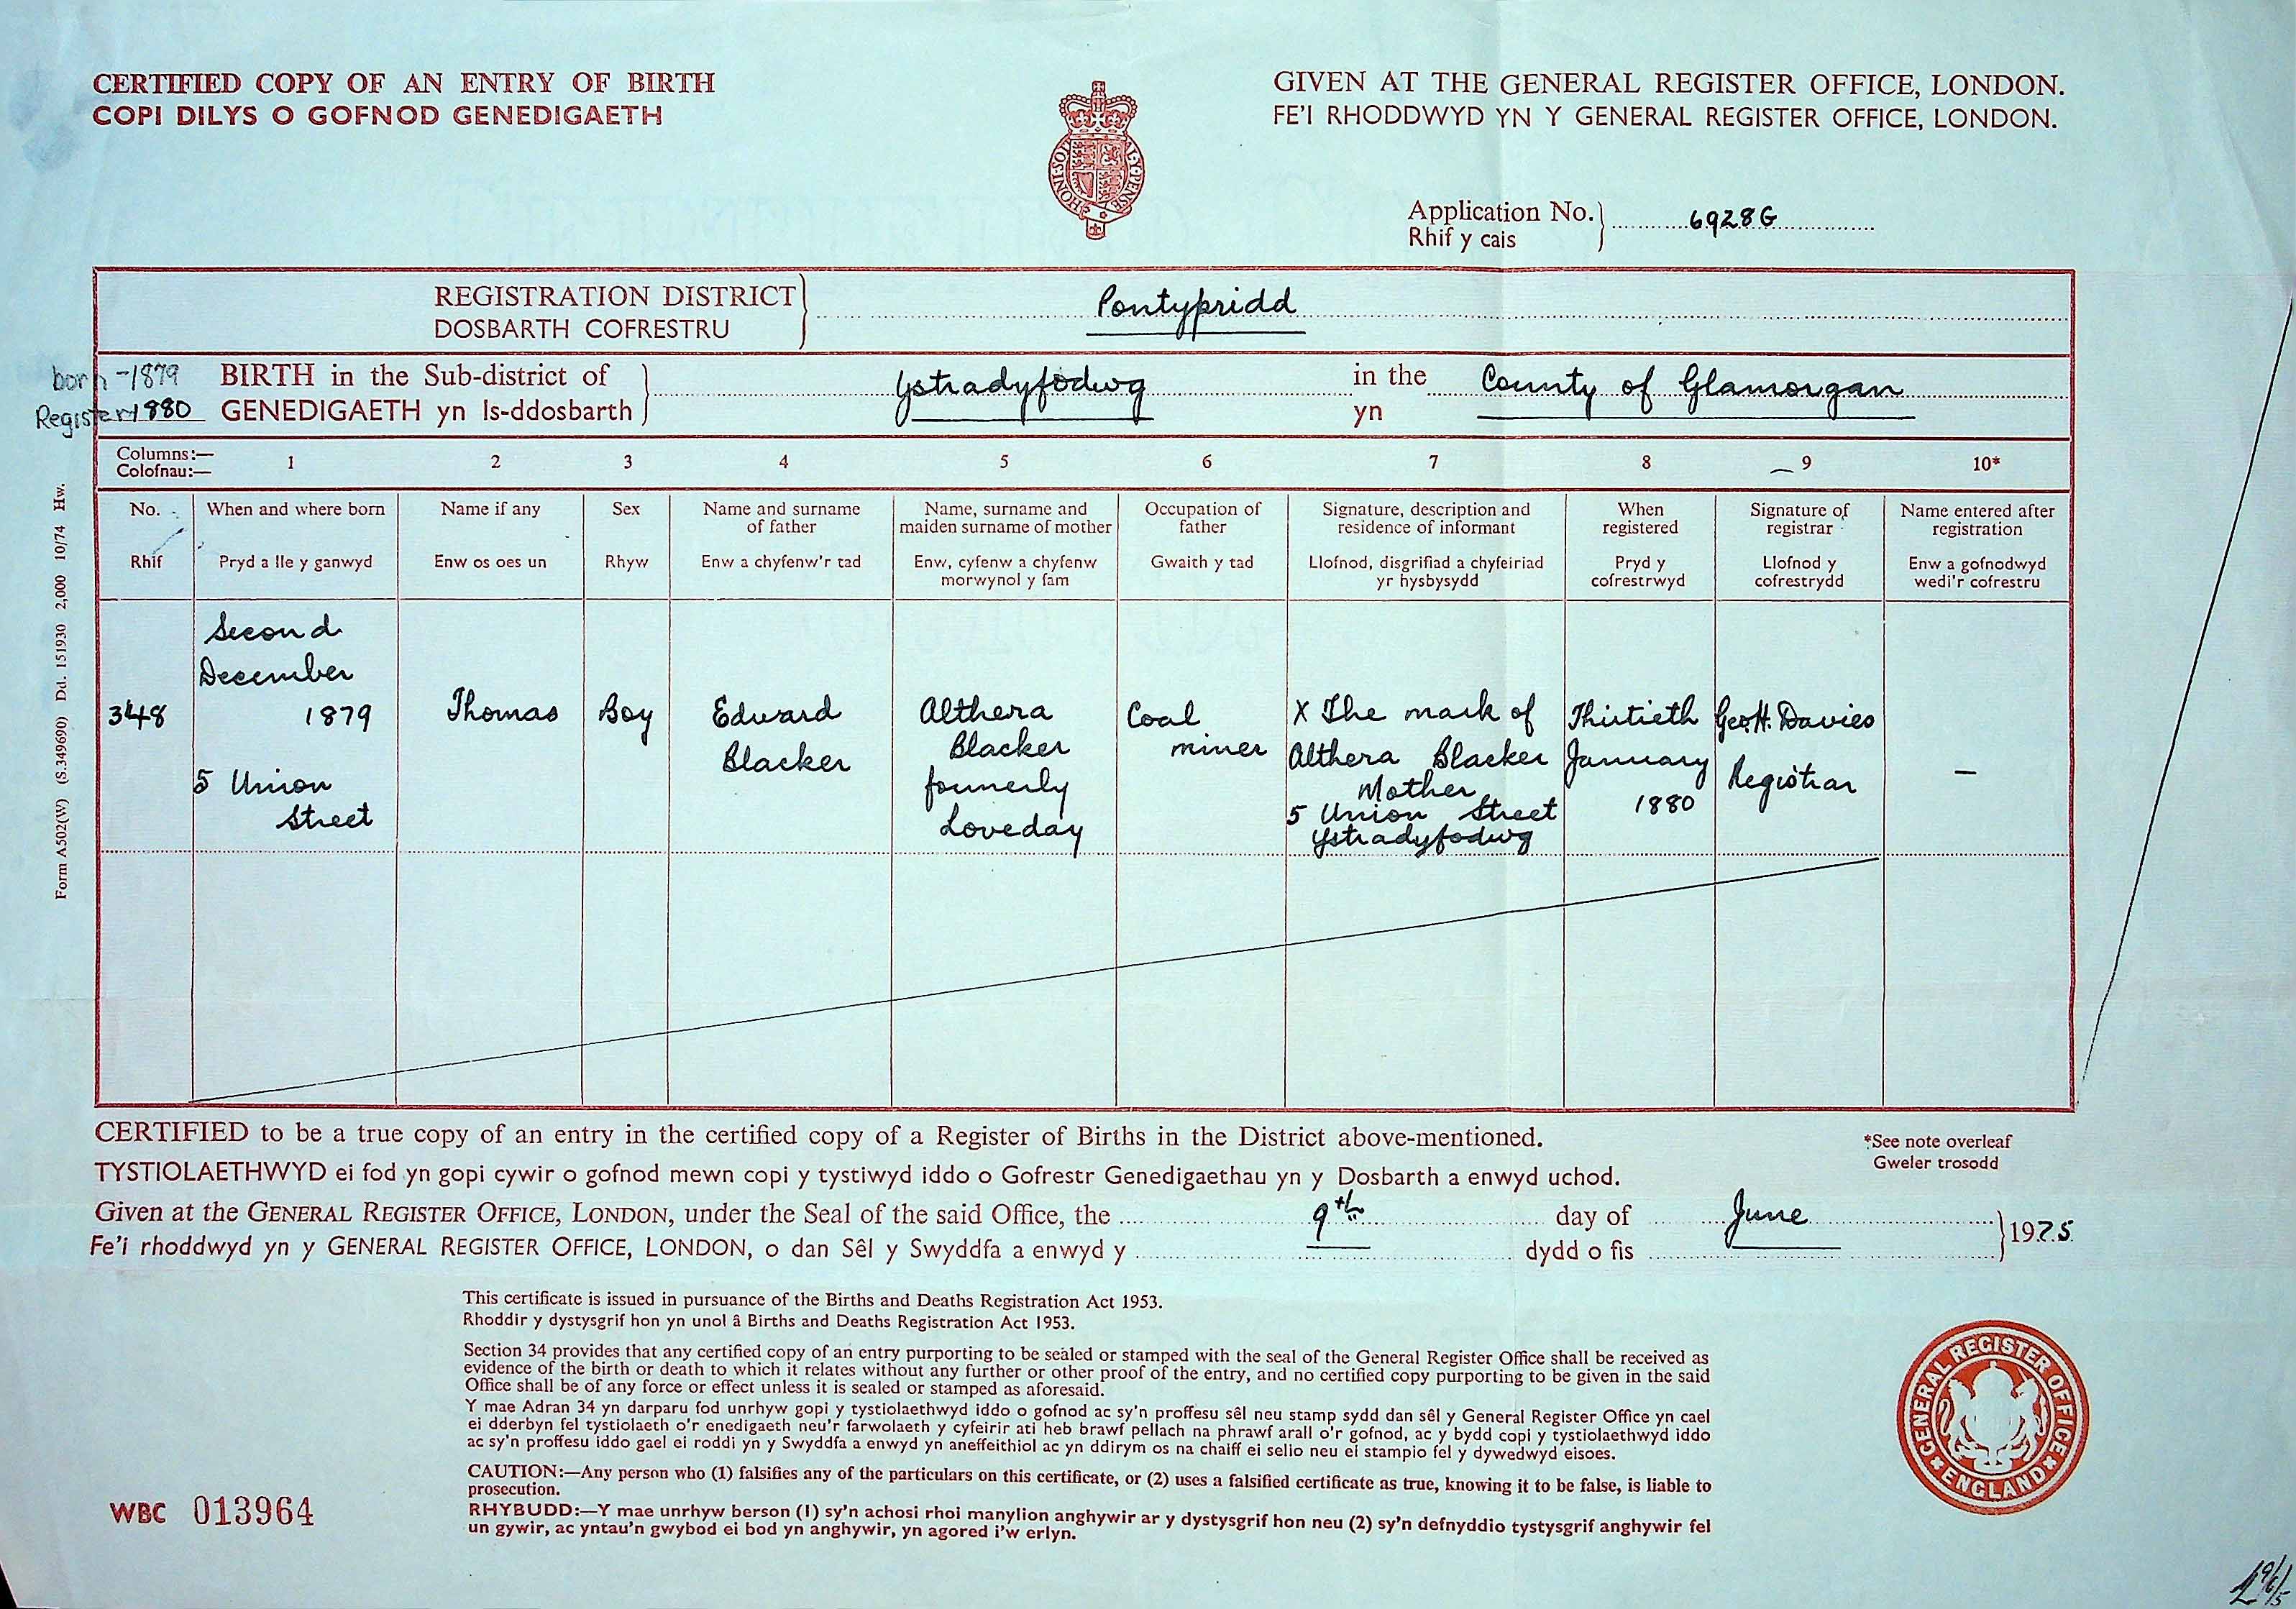 CERTIFIED COPY OF AN ENTRY OF BIRTH
COPI DILYS O GOFNOD GENEDIGAETH
GIVEN AT THE GENERAL REGISTER OFFICE, LONDON.
FE'I RHODDWYD YN Y GENERAL REGISTER OFFICE, LONDON.
HONI·SOI AL·Y·PENSE
Application No. 6928G
Rhif y cais
REGISTRATION DISTRICT Pontypridd
DOSBARTH COFRESTRU
born -1879
Register 1880
BIRTH in the Sub-district of Ystradyfodwg in the County of Glamorgan
GENEDIGAETH yn Is-ddosbarth yn
Columns:— 1 2 3 4 5 6 7 8 9 10*
Colofnau:—
No.
Rhif
When and where born
Pryd a lle y ganwyd
Name if any
Enw os oes un
Sex
Rhyw
Name and surname
of father
Enw a chyfenw'r tad
Name, surname and
maiden surname of mother
Enw, cyfenw a chyfenw
morwynol y fam
Occupation of
father
Gwaith y tad
Signature, description and
residence of informant
Llofnod, disgrifiad a chyfeiriad
yr hysbysydd
When
registered
Pryd y
cofrestrwyd
Signature of
registrar
Llofnod y
cofrestrydd
Name entered after
registration
Enw a gofnodwyd
wedi'r cofrestru
348
Second
December
1879
5 Union
Street
Thomas
Boy
Edward
Blacker
Althera
Blacker
formerly
Loveday
Coal
miner
X The mark of
Althera Blacker
Mother
5 Union Street
Ystradyfodwg
Thirtieth
January
1880
Geo. H. Davies
Registrar
—
Form A502(W) (S.349690) Dd. 151930 2,000 10/74 Hw.
CERTIFIED to be a true copy of an entry in the certified copy of a Register of Births in the District above-mentioned.
TYSTIOLAETHWYD ei fod yn gopi cywir o gofnod mewn copi y tystiwyd iddo o Gofrestr Genedigaethau yn y Dosbarth a enwyd uchod.
*See note overleaf
Gweler trosodd
Given at the GENERAL REGISTER OFFICE, LONDON, under the Seal of the said Office, the 9th day of June 1975
Fe'i rhoddwyd yn y GENERAL REGISTER OFFICE, LONDON, o dan Sêl y Swyddfa a enwyd y dydd o fis
This certificate is issued in pursuance of the Births and Deaths Registration Act 1953.
Rhoddir y dystysgrif hon yn unol â Births and Deaths Registration Act 1953.
Section 34 provides that any certified copy of an entry purporting to be sealed or stamped with the seal of the General Register Office shall be received as
evidence of the birth or death to which it relates without any further or other proof of the entry, and no certified copy purporting to be given in the said
Office shall be of any force or effect unless it is sealed or stamped as aforesaid.
Y mae Adran 34 yn darparu fod unrhyw gopi y tystiolaethwyd iddo o gofnod ac sy'n proffesu sêl neu stamp sydd dan sêl y General Register Office yn cael
ei dderbyn fel tystiolaeth o'r enedigaeth neu'r farwolaeth y cyfeirir ati heb brawf pellach na phrawf arall o'r gofnod, ac y bydd copi y tystiolaethwyd iddo
ac sy'n proffesu iddo gael ei roddi yn y Swyddfa a enwyd yn aneffeithiol ac yn ddirym os na chaiff ei selio neu ei stampio fel y dywedwyd eisoes.
CAUTION:—Any person who (1) falsifies any of the particulars on this certificate, or (2) uses a falsified certificate as true, knowing it to be false, is liable to
prosecution.
RHYBUDD:—Y mae unrhyw berson (1) sy'n achosi rhoi manylion anghywir ar y dystysgrif hon neu (2) sy'n defnyddio tystysgrif anghywir fel
un gywir, ac yntau'n gwybod ei bod yn anghywir, yn agored i'w erlyn.
WBC 013964
GENERAL REGISTER OFFICE
★ ENGLAND ★